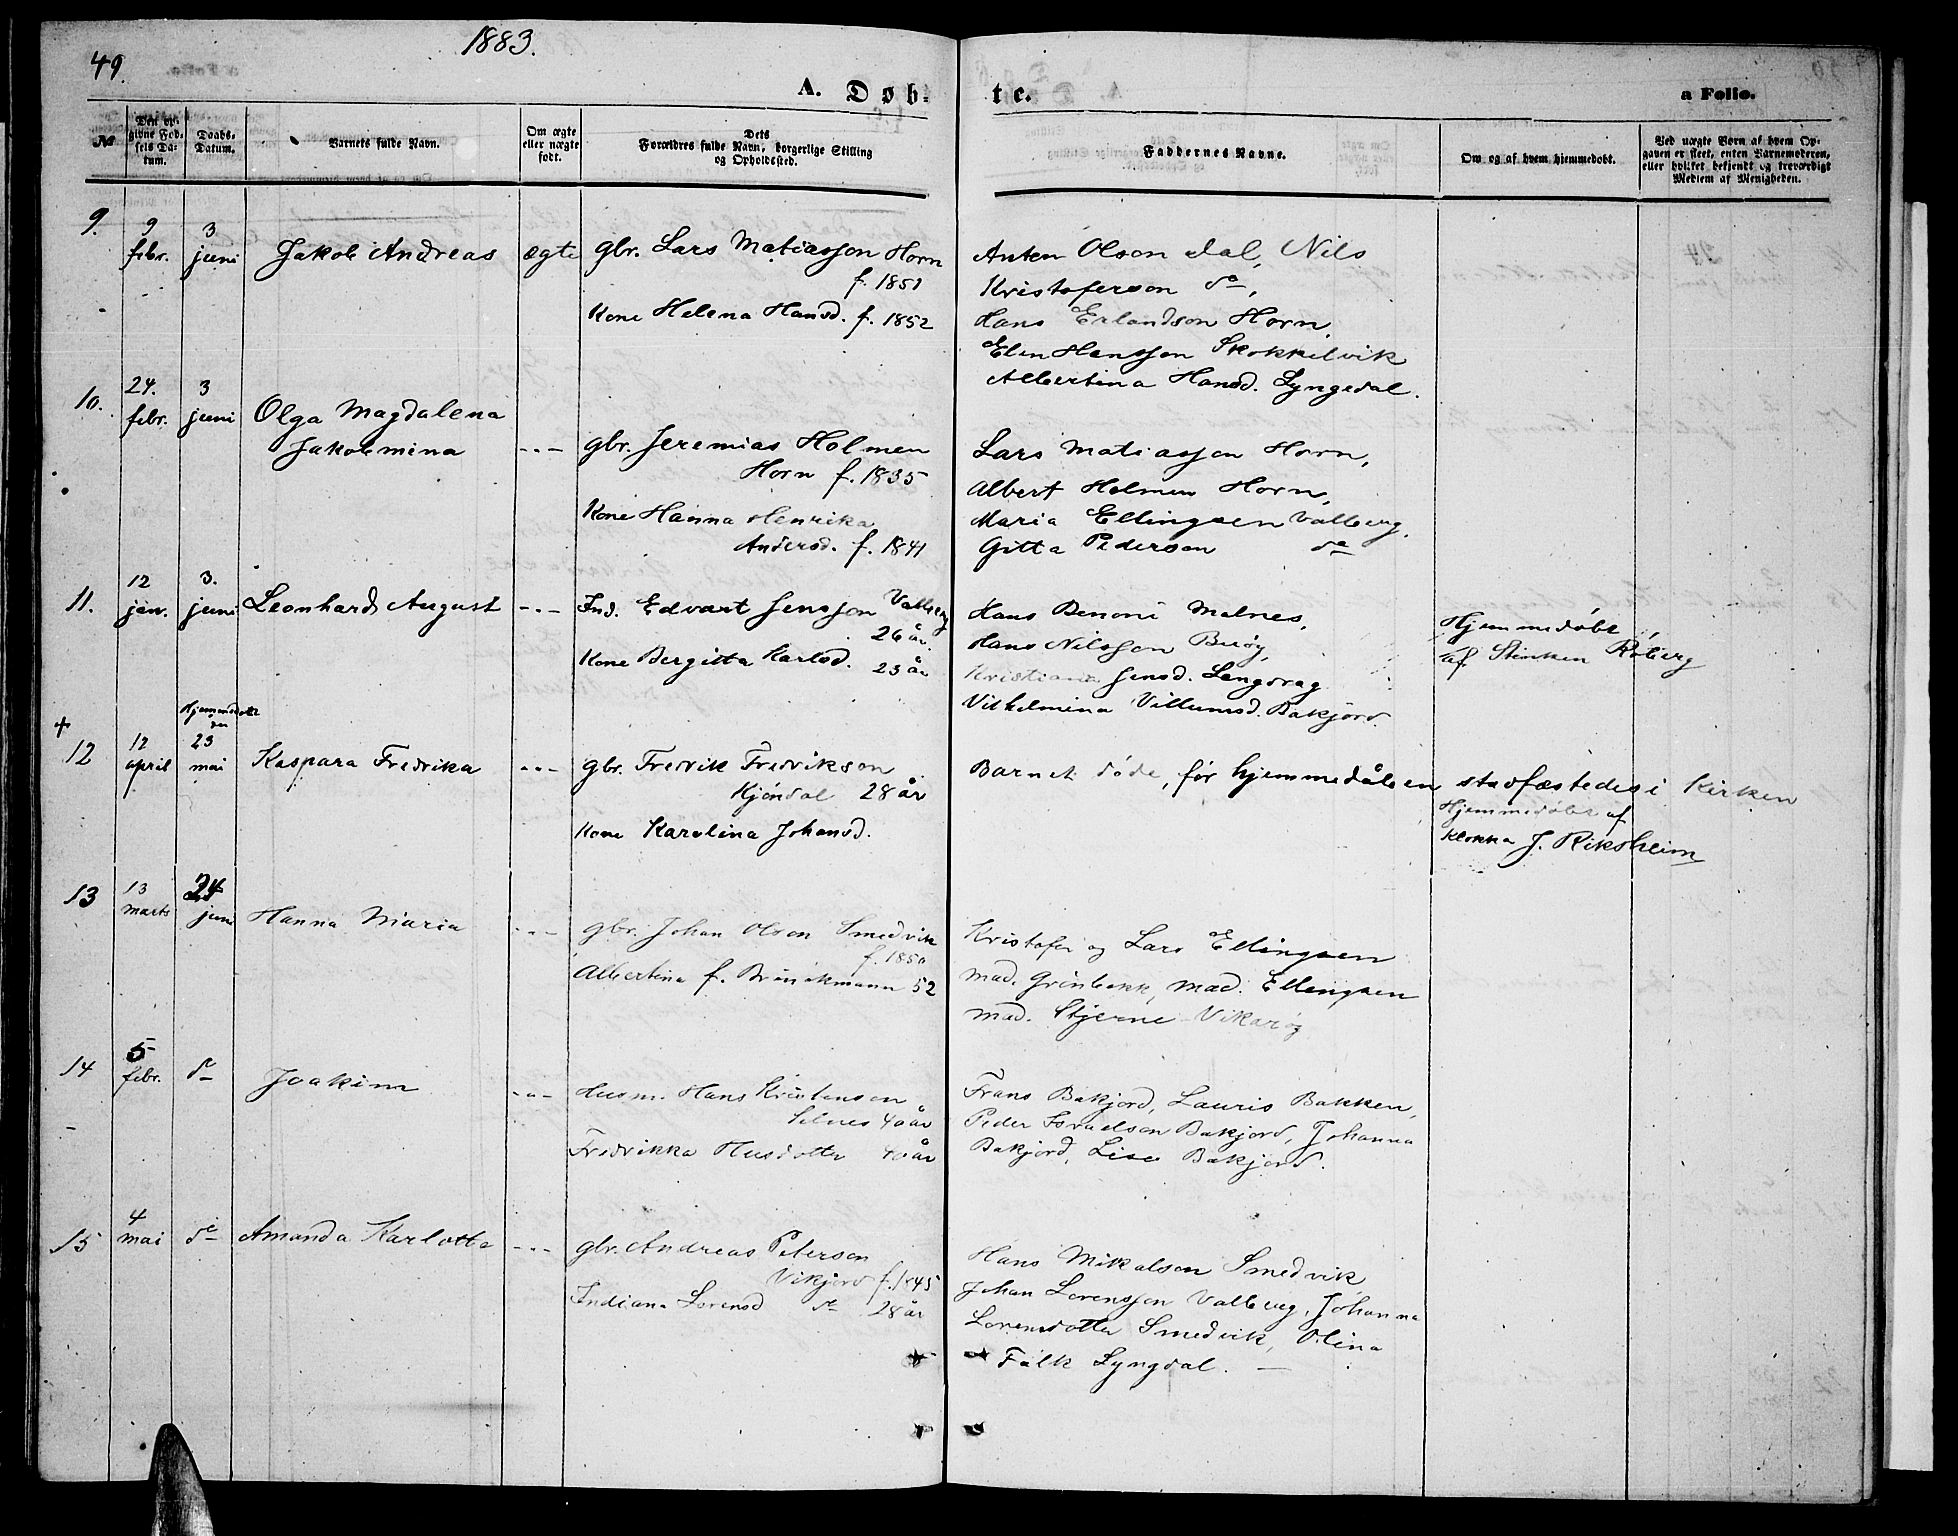 49.
1883.
A. Døb-
te.
a Folio.
№
Den opgivne Fødsels Datum.
Daabs-Datum.
Barnets fulde Navn.
Om ægte eller uægte født.
Dets Forældres fulde Navn, borgerlige Stilling og Opholdssted.
Faddernes Navne.
Om og af hvem hjemmedøbt.
Ved uægte Børn af hvem Opgaven er skeet, enten Barnemoderen, eller hvilket bekjendt og troværdigt Medlem af Menigheden.
9.
9 febr.
3 juni
Jakob Andreas
ægte
gbr. Lars Matiasson Horn
f. 1851
Kone Helena Hansd. f. 1852
Anton Olson dal, Nils
Kristoferson do,
Hans Erlandson Horn,
Elen Hansson Skokkelvik
Albertina Hansd. Lyngedal.
10.
24. febr.
3 juni
Olga Magdalena
Jakobmina
-"-
gbr. Jeremias Holmen
Horn f. 1835
Kone Hanna Henrika
Andersd. f. 1841
Lars Matiasson Horn,
Albert Holmen Horn,
Maria Ellingsen Valberg,
Gitta Pederson do
11.
12 jan.
3. juni
Leonhard August
-"-
Ind. Edvart Jensson Valberg
26 år.
Kone Bergitta Karlsd. 23 år
Hans Benoni Malnes,
Hans Nilsson Buøy,
Kristiana Jensd. Langdrag
Vilhelmina Villumsd. Bakjord.
Hjemmedøbt
af Steinken Røberg
+
12
12 april
Hjemmedøbt den
23 mai
Kaspara Fredrika
-"-
gbr. Fredrik Fredrikson
Kjøndal 28 år
Kone Karolina Johansd.
Barnet døde, før hjemmedåben stadfæstedes i Kirken
Hjemmedøbt af
klokka J. Riksheim
13
13 marts
24 juni
Hanna Maria
-"-
gbr. Johan Olson Smedvik
f. 1850
Albertina f. Brinckmann 52
Kristofer og Lars Ellingsen
mad. Grönbekk, mad. Ellingsen
mad. Stjerne Vikarøy
14
5 febr.
do
Joakim
-"-
Husm. Hans Kristensen
Selnes 40 år
Fredrikka Husdotter 40 år
Frans Bakjord, Lauris Bakken,
Peder Israelson Bakjord, Johanna
Bakjord, Lise Bakjord.
15
4 mai
do
Amanda Karlotta
-"-
gbr. Andreas Peterson
Vikjord f. 1845
Indiana Lorensd do 28 år
Hans Mikalson Smedvik,
Johan Lorensson Valberg, Johanna
Lorensdotter Smedvik, Olina
Falk Lyngdal.